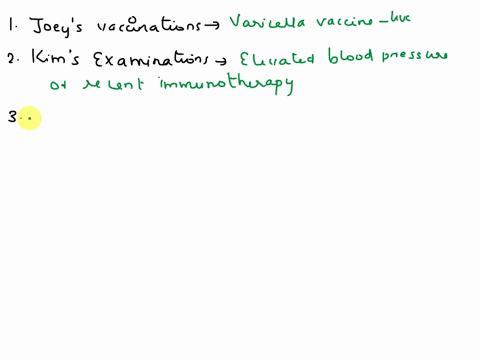 1. Joey's vaccinations → Varicella vaccine - live
2. Kim's Examinations → Elevated blood pressure
or recent immunotherapy
3.